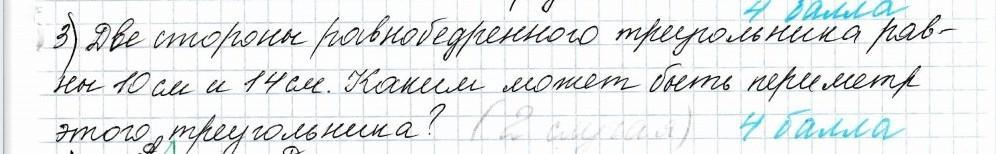 4 балла
3) Две стороны равнобедренного треугольника рав-
ны 10 см и 14 см. Каким может быть периметр
этого треугольника? (2 случая) 4 балла